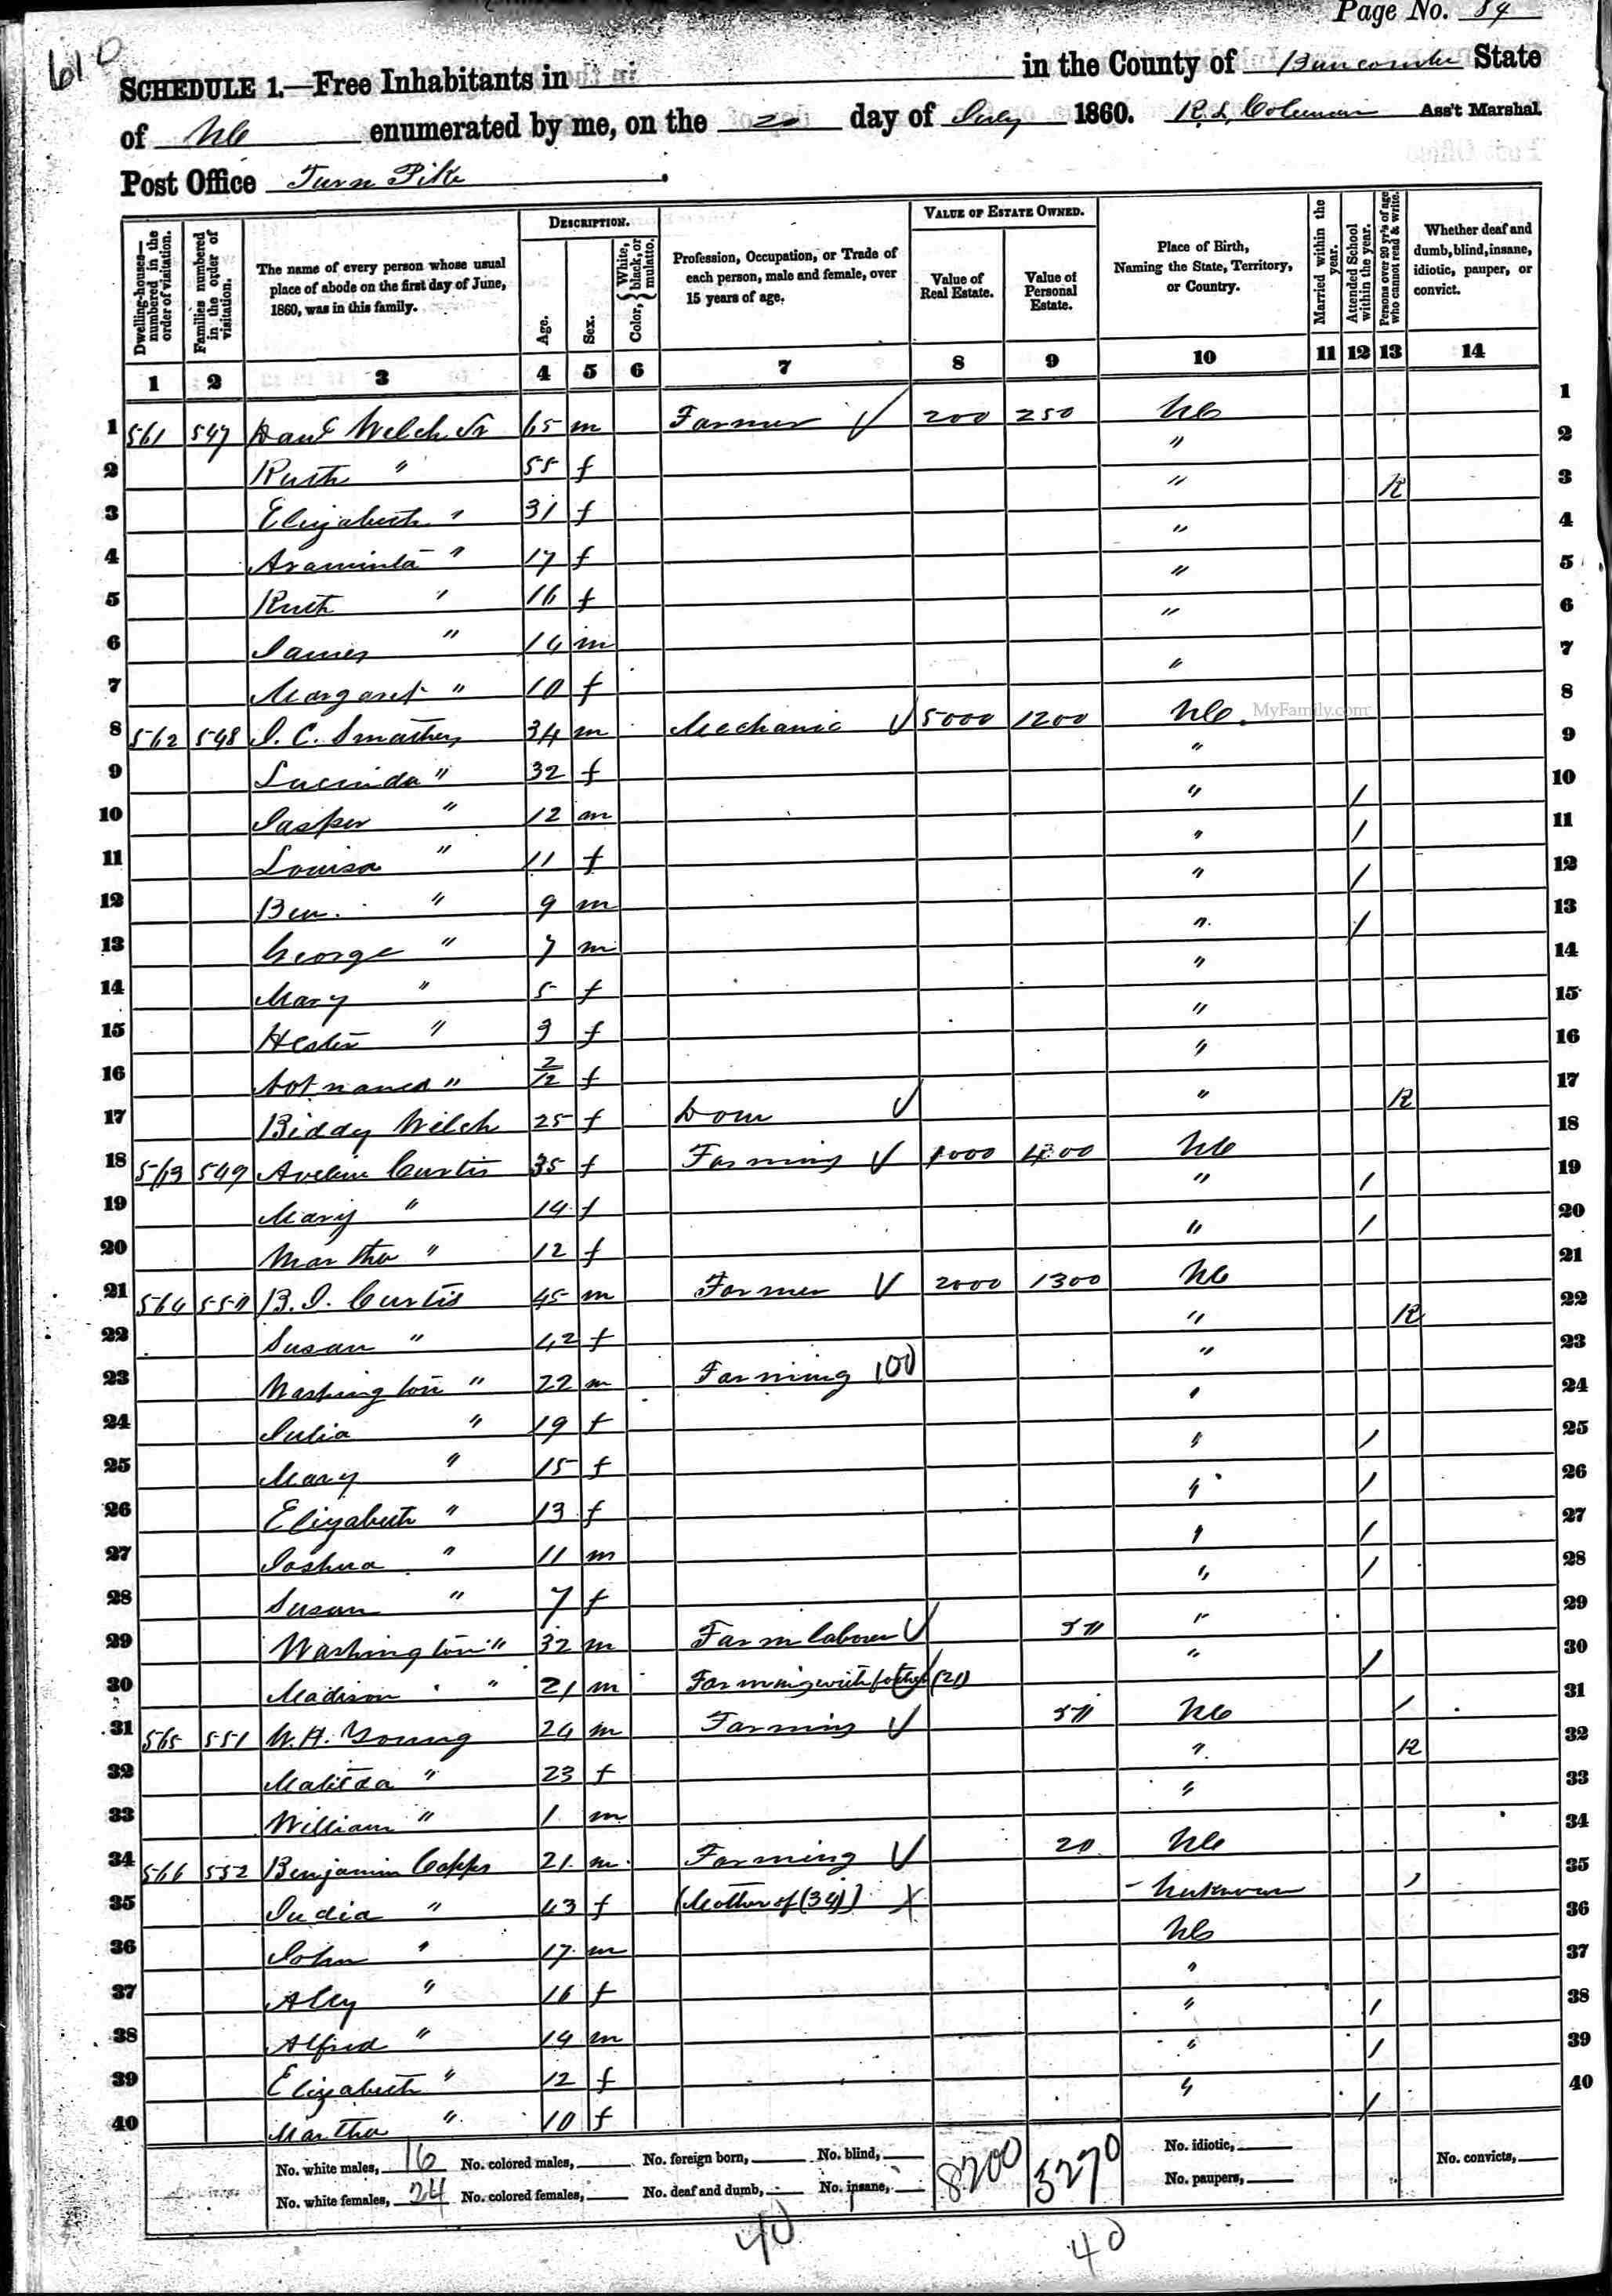 Page No. 84
610
SCHEDULE 1.—Free Inhabitants in in the County of Buncombe State
of NC enumerated by me, on the 20 day of July 1860. R. L. Coleman Ass't Marshal.
Post Office Turn Pike
Dwelling-houses—numbered in the order of visitation.
Families numbered in the order of visitation.
The name of every person whose usual place of abode on the first day of June, 1860, was in this family.
DESCRIPTION.
Age.
Sex.
Color, { White, black, or mulatto.
Profession, Occupation, or Trade of each person, male and female, over 15 years of age.
VALUE OF ESTATE OWNED.
Value of Real Estate.
Value of Personal Estate.
Place of Birth, Naming the State, Territory, or Country.
Married within the year.
Attended School within the year.
Persons over 20 yr's of age who cannot read & write.
Whether deaf and dumb, blind, insane, idiotic, pauper, or convict.
1 2 3 4 5 6 7 8 9 10 11 12 13 14
1 561 547 Danl Welch Sr 65 m Farmer 200 250 NC 1
2 Ruth " 55 f " 2
3 Elizabeth " 31 f " R 3
4 Araminta " 17 f " 4
5 Ruth " 16 f " 5
6 James " 14 m " 6
7 Margaret " 10 f " 7
8 562 548 J. C. Smathers 34 m Mechanic 5000 1200 NC 8
MyFamily.com
9 Lucinda " 32 f " 9
10 Jasper " 12 m " / 10
11 Louisa " 11 f " / 11
12 Ben. " 9 m " / 12
13 George " 7 m " / 13
14 Mary " 5 f " 14
15 Hester " 3 f " 15
16 Not named " 2/12 f " 16
17 Biddy Welch 25 f Dom " R 17
18 563 549 Aveline Curtis 35 f Farming 1000 400 NC 18
19 Mary " 14 f " / 19
20 Martha " 12 f " / 20
21 564 550 B. J. Curtis 45 m Farmer 2000 1300 NC 21
22 Susan " 42 f " R 22
23 Washington " 22 m Farming 100 " 23
24 Julia " 19 f " 24
25 Mary " 15 f " / 25
26 Elizabeth " 13 f " / 26
27 Joshua " 11 m " / 27
28 Susan " 7 f " / 28
29 Washington " 32 m Farm laborer 50 " 29
30 Madison " 21 m Farming with father (21) " / 30
31 565 551 W. H. Young 24 m Farming 50 NC / 31
32 Matilda " 23 f " R 32
33 William " 1 m " 33
34 566 552 Benjamin Capps 21 m Farming 20 NC 34
35 India " 43 f (Mother of (34)) X Unknown / 35
36 John " 17 m NC 36
37 Ally " 16 f " 37
38 Alfred " 14 m " / 38
39 Elizabeth " 12 f " / 39
40 Martha " 10 f " / 40
No. white males, 16 No. colored males, No. foreign born, No. blind, 8200 5270 No. idiotic, No. convicts,
No. white females, 24 No. colored females, No. deaf and dumb, No. insane, No. paupers,
40 40